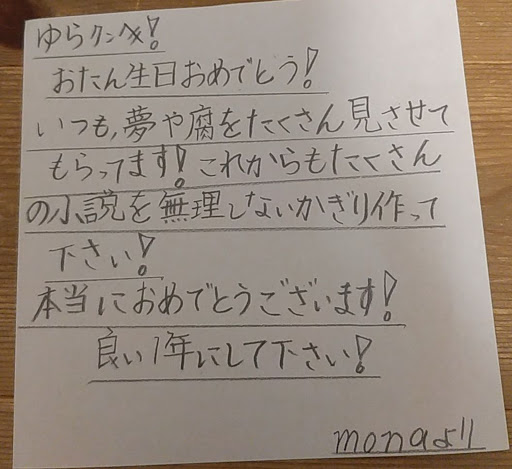 ゆらクンへ!
おたん生日おめでとう!
いつも,夢や腐をたくさん見させて
もらってます!これからもたくさん
の小説を無理しないかぎり作って
下さい!
本当におめでとうございます!
良い1年にして下さい!
monaより